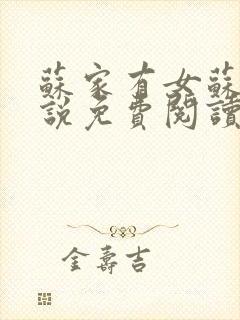 蘇家有女蘇
說免費閱讀
金壽吉